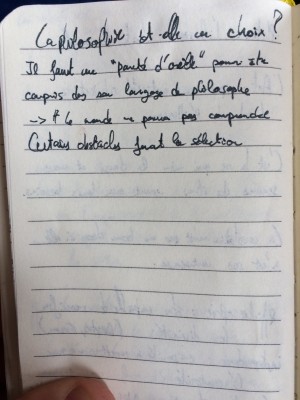 La philosophie est-elle un choix ?
Il faut une "pureté d'oreille" pour être
compris dans son langage de philosophe
--> tt le monde ne pourra pas comprendre
Certains obstacles feront la sélection